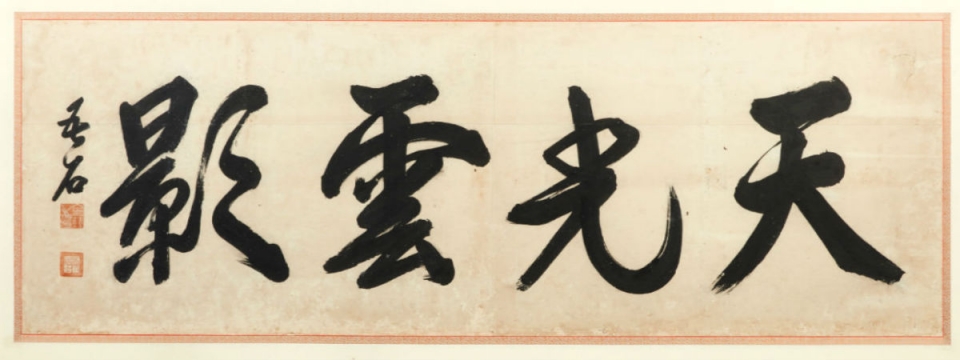 天光雲影
吾石